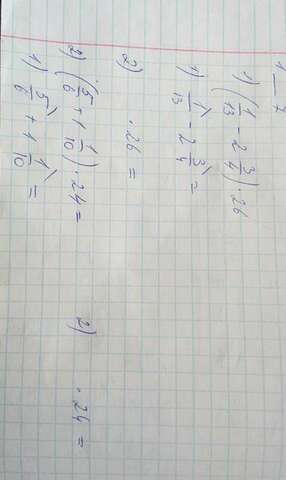 1) (1/13 - 2 3/4) · 26
1) 1/13 - 2 3/4 =
2) · 26 =
2) (5/6 + 1 1/10) · 24 =
1) 5/6 + 1 1/10 = 2) · 24 =